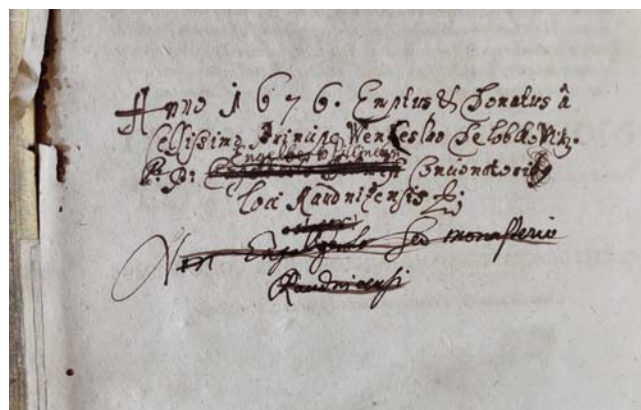 Anno 1676. Emptus & Donatus â
Celsissimo Principe Wenceslao De Lobkowitz.
Engelberto Pilsnensi
P: P: Concionatori
loci Raudnizensis
Non Engelberto sed monasterio
Raudnicensi